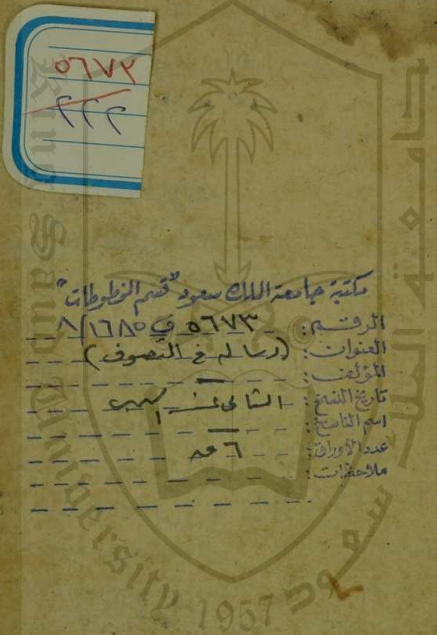 ٥٦٧٣
٢٢٢
مكتبة جامعة الملك سعود "قسم المخطوطات"
الرقم: ٥٦٧٣ ف ١٦٨٥/٨
العنوان: (رسالة في التصوف)
المؤلف: —
تاريخ النسخ: الثاني عشر
اسم الناسخ: —
عدد الأوراق: ٦
ملاحظات:
جامعة الملك سعود
King Saud University
1957